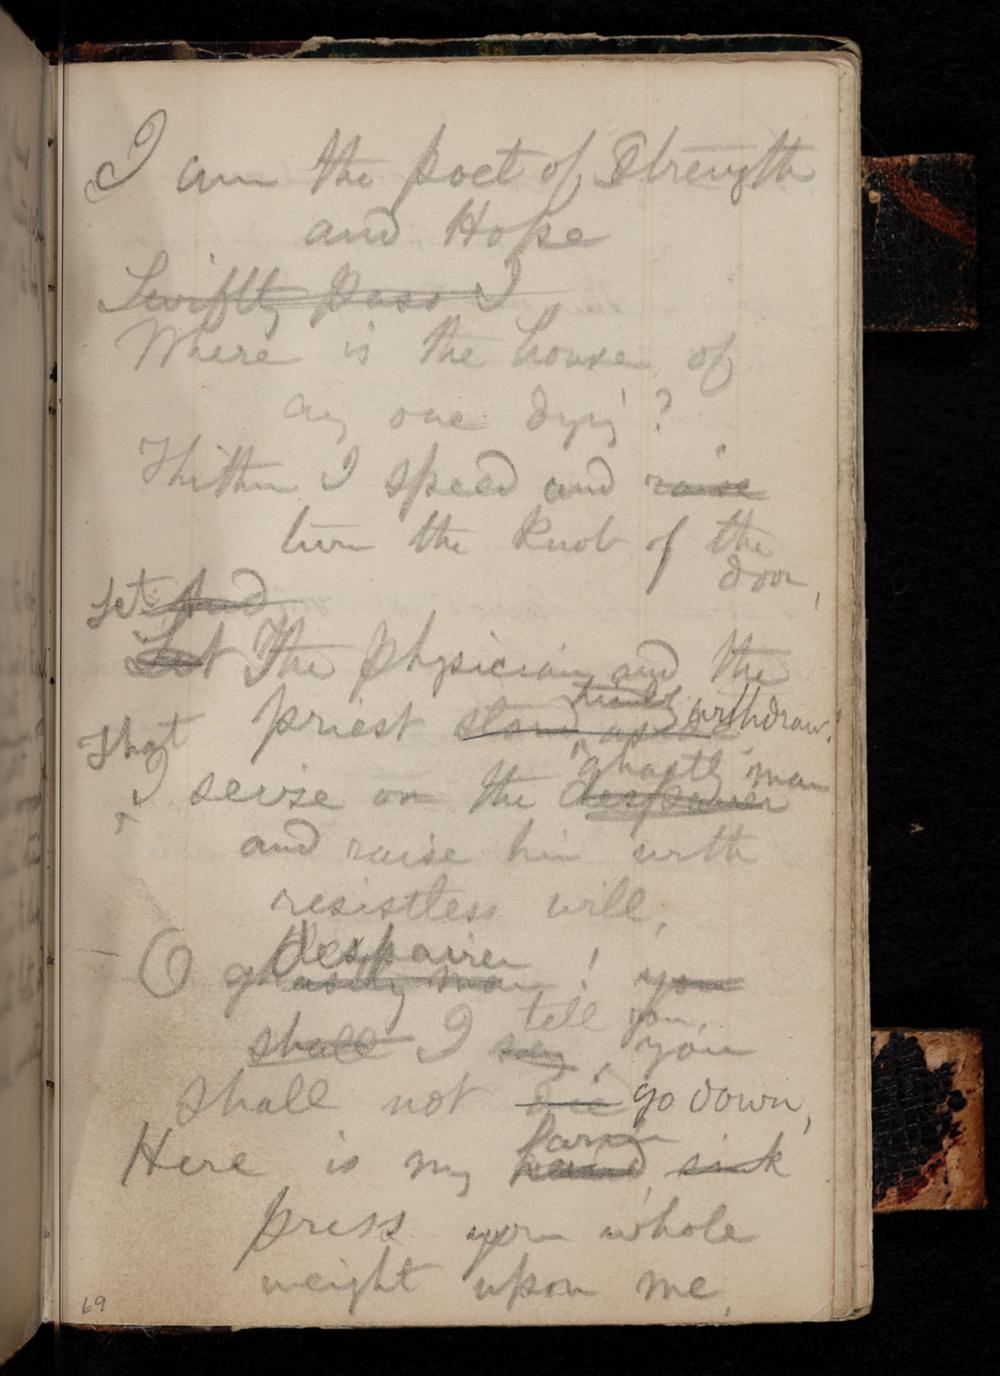 I am the poet of Strength
and Hope
Swiftly pass I
Where is the house of
any one dying?
Thither I speed and raise
turn the knob of the
door,
Let And
Let The physician and the
timidly withdraw!
priest stand aside
That
ghastly man
I seize on the despairer
and raise him with
resistless will;
despairer
O ghastly man! you
tell you,
shall I say, you
shall not die go down,
Here is my hand, sink
press your whole
weight upon me,
69